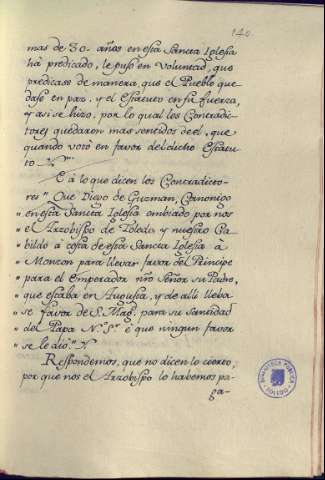 140.
mas de 30. años en esta Sancta Iglesia
há predicado, le puso en voluntad, que
predicase de manera, que el Pueblo que-
dase en paz, y el Estatuto en su fuerza,
y asi se hizo, por lo qual los Contradic-
tores quedaron mas sentidos de el, que
quando votó en favor del dicho Estatu-
to
E á lo que dicen los Contradicto-
res " Que Diego de Guzman, Canonigo
" en esta Sancta Iglesia embiado por nos
" el Arzobispo de Toledo, y nuestro Ca-
" bildo á costa de esta Sancta Iglesia á
" Monzon para llevar favor del Principe
" para el Emperador nrõ Señor su Padre,
" que estaba en Augusta, y de alli lleba-
" se favor de S. Mag.d para su Sanctidad
" del Papa N.º S.r é que ningun favor
" se le dió."
Respondemos, que no dicen lo cierto,
por que nos el Arzobispo lo habemos pa-
ga-
BIBLIOTECA PUBLICA
TOLEDO